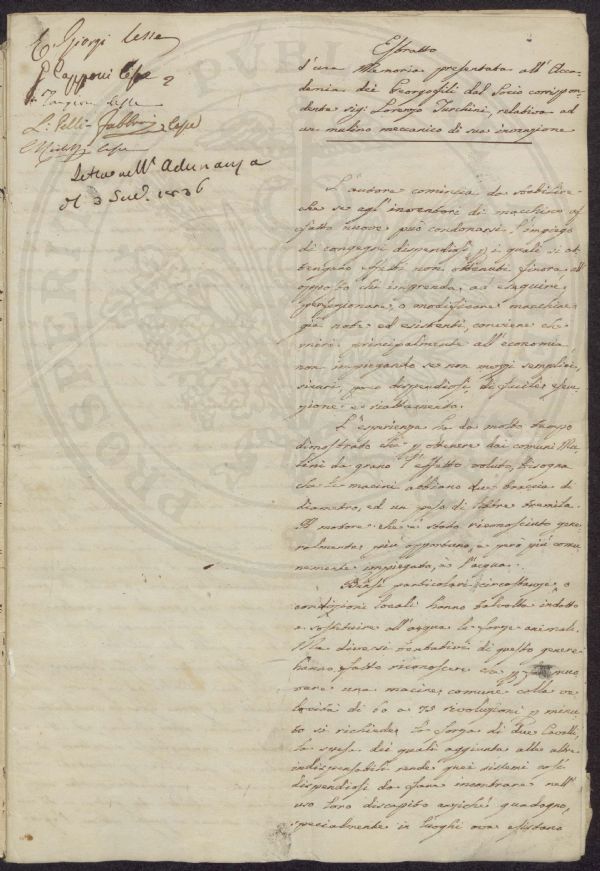 E. Giorgi lesse
G. Capponi lesse
lesse
L. Pelli-Fabbroni lesse
lesse
Letta nell'Adunanza
del 3 1836
Estratto
d'una Memoria presentata all'Acca-
demia dei Georgofili dal Socio corrispon-
dente sig: Lorenzo Turchini, relativa ad
un mulino meccanico di sua invenzione
L'autore comincia da stabilire
che se agl'inventori di macchine af-
fatto nuove può condonarsi l'impiego
di congegni dispendiosi, p i quali si ot-
tengano effetti non ottenuti finora all'
opposto chi imprenda, ad eseguire,
perfezionare, o modificare macchine
già note ed esistenti, conviene che
miri principalmente all'economia
non impiegando se non mezzi semplici,
sicuri, poco dispendiosi, di facile esecu-
zione e riattamento.
L'esperienza ha da molto tempo
dimostrato che p ottenere dai comuni Mu-
lini da grano l'effetto voluto, bisogna
che le macini abbiano due braccia di
diametro, ed un peso di libbre tremila.
Il motore che è stato riconosciuto gene-
ralmente più opportuno, e però più comu-
nemente impiegato, è l'acqua.
Bensì particolari circostanze, o
condizioni locali hanno talvolta indotto
a sostituire all'acqua le forze animali.
Ma diversi tentativi di questo genere
hanno fatto riconoscere che p muo-
vere una macine comune colla ve-
locità di 60 a 75 rivoluzioni p minu-
to si richiede la forza di due Cavalli,
la spesa dei quali aggiunta alle altre
indispensabili rende quei sistemi così
dispendiosi da fare incontrare nell'
uso loro discapito anziché guadagno,
specialmente in luoghi ove esistano